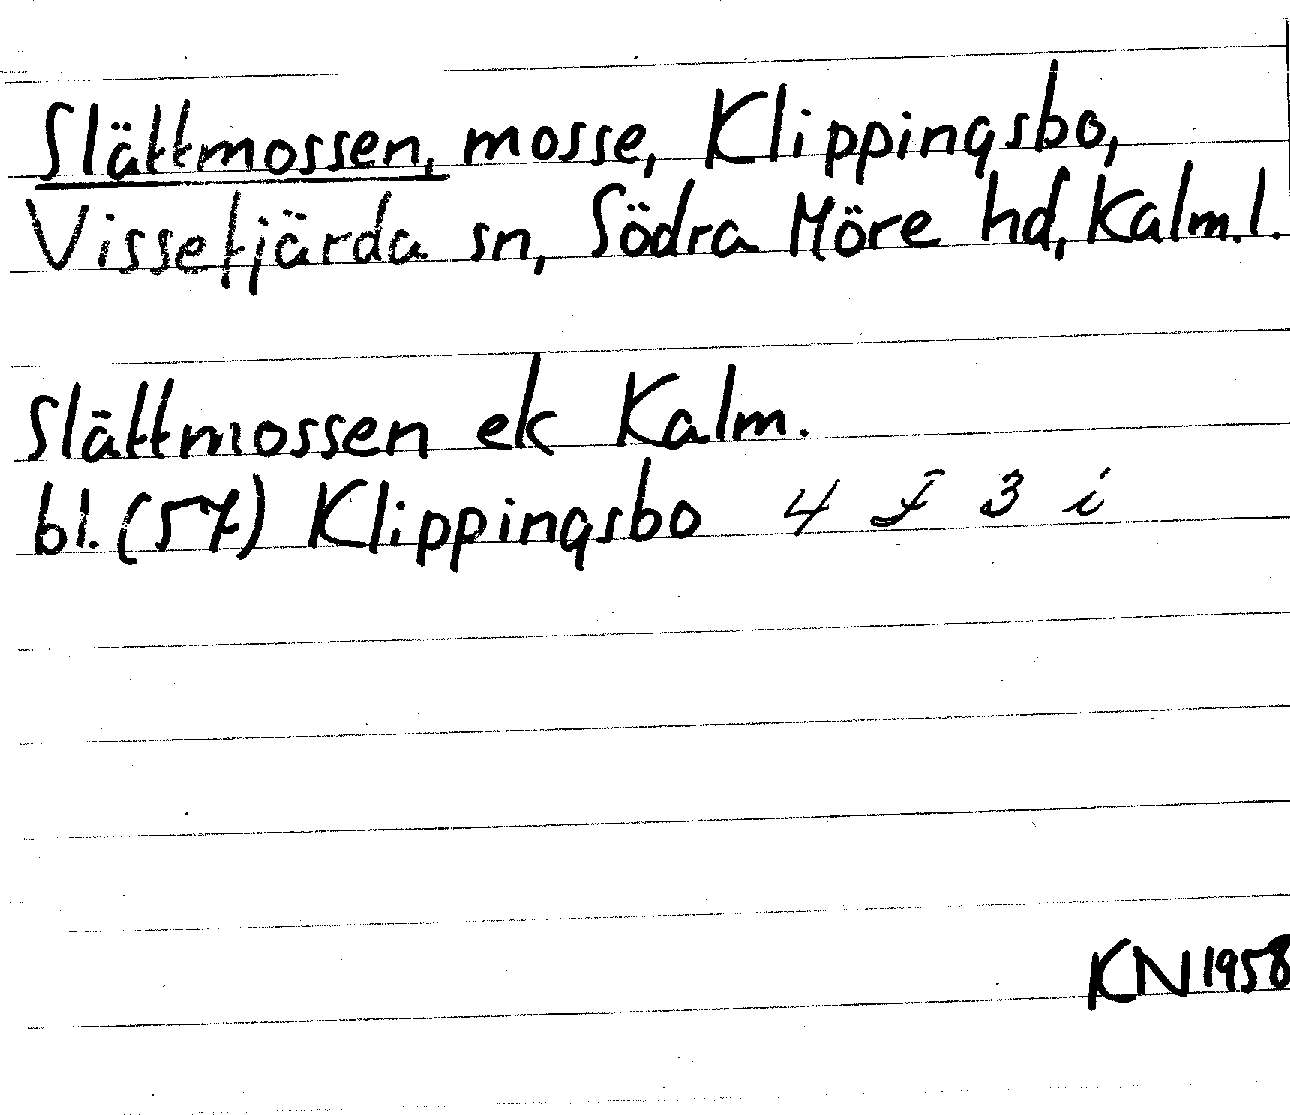 Slättmossen, mosse, Klippingsbo,
Vissefjärda sn, Södra Möre hd, Kalm.l.
Slättmossen ek Kalm.
bl. (57) Klippingsbo 4 F 3 i
KN 1958